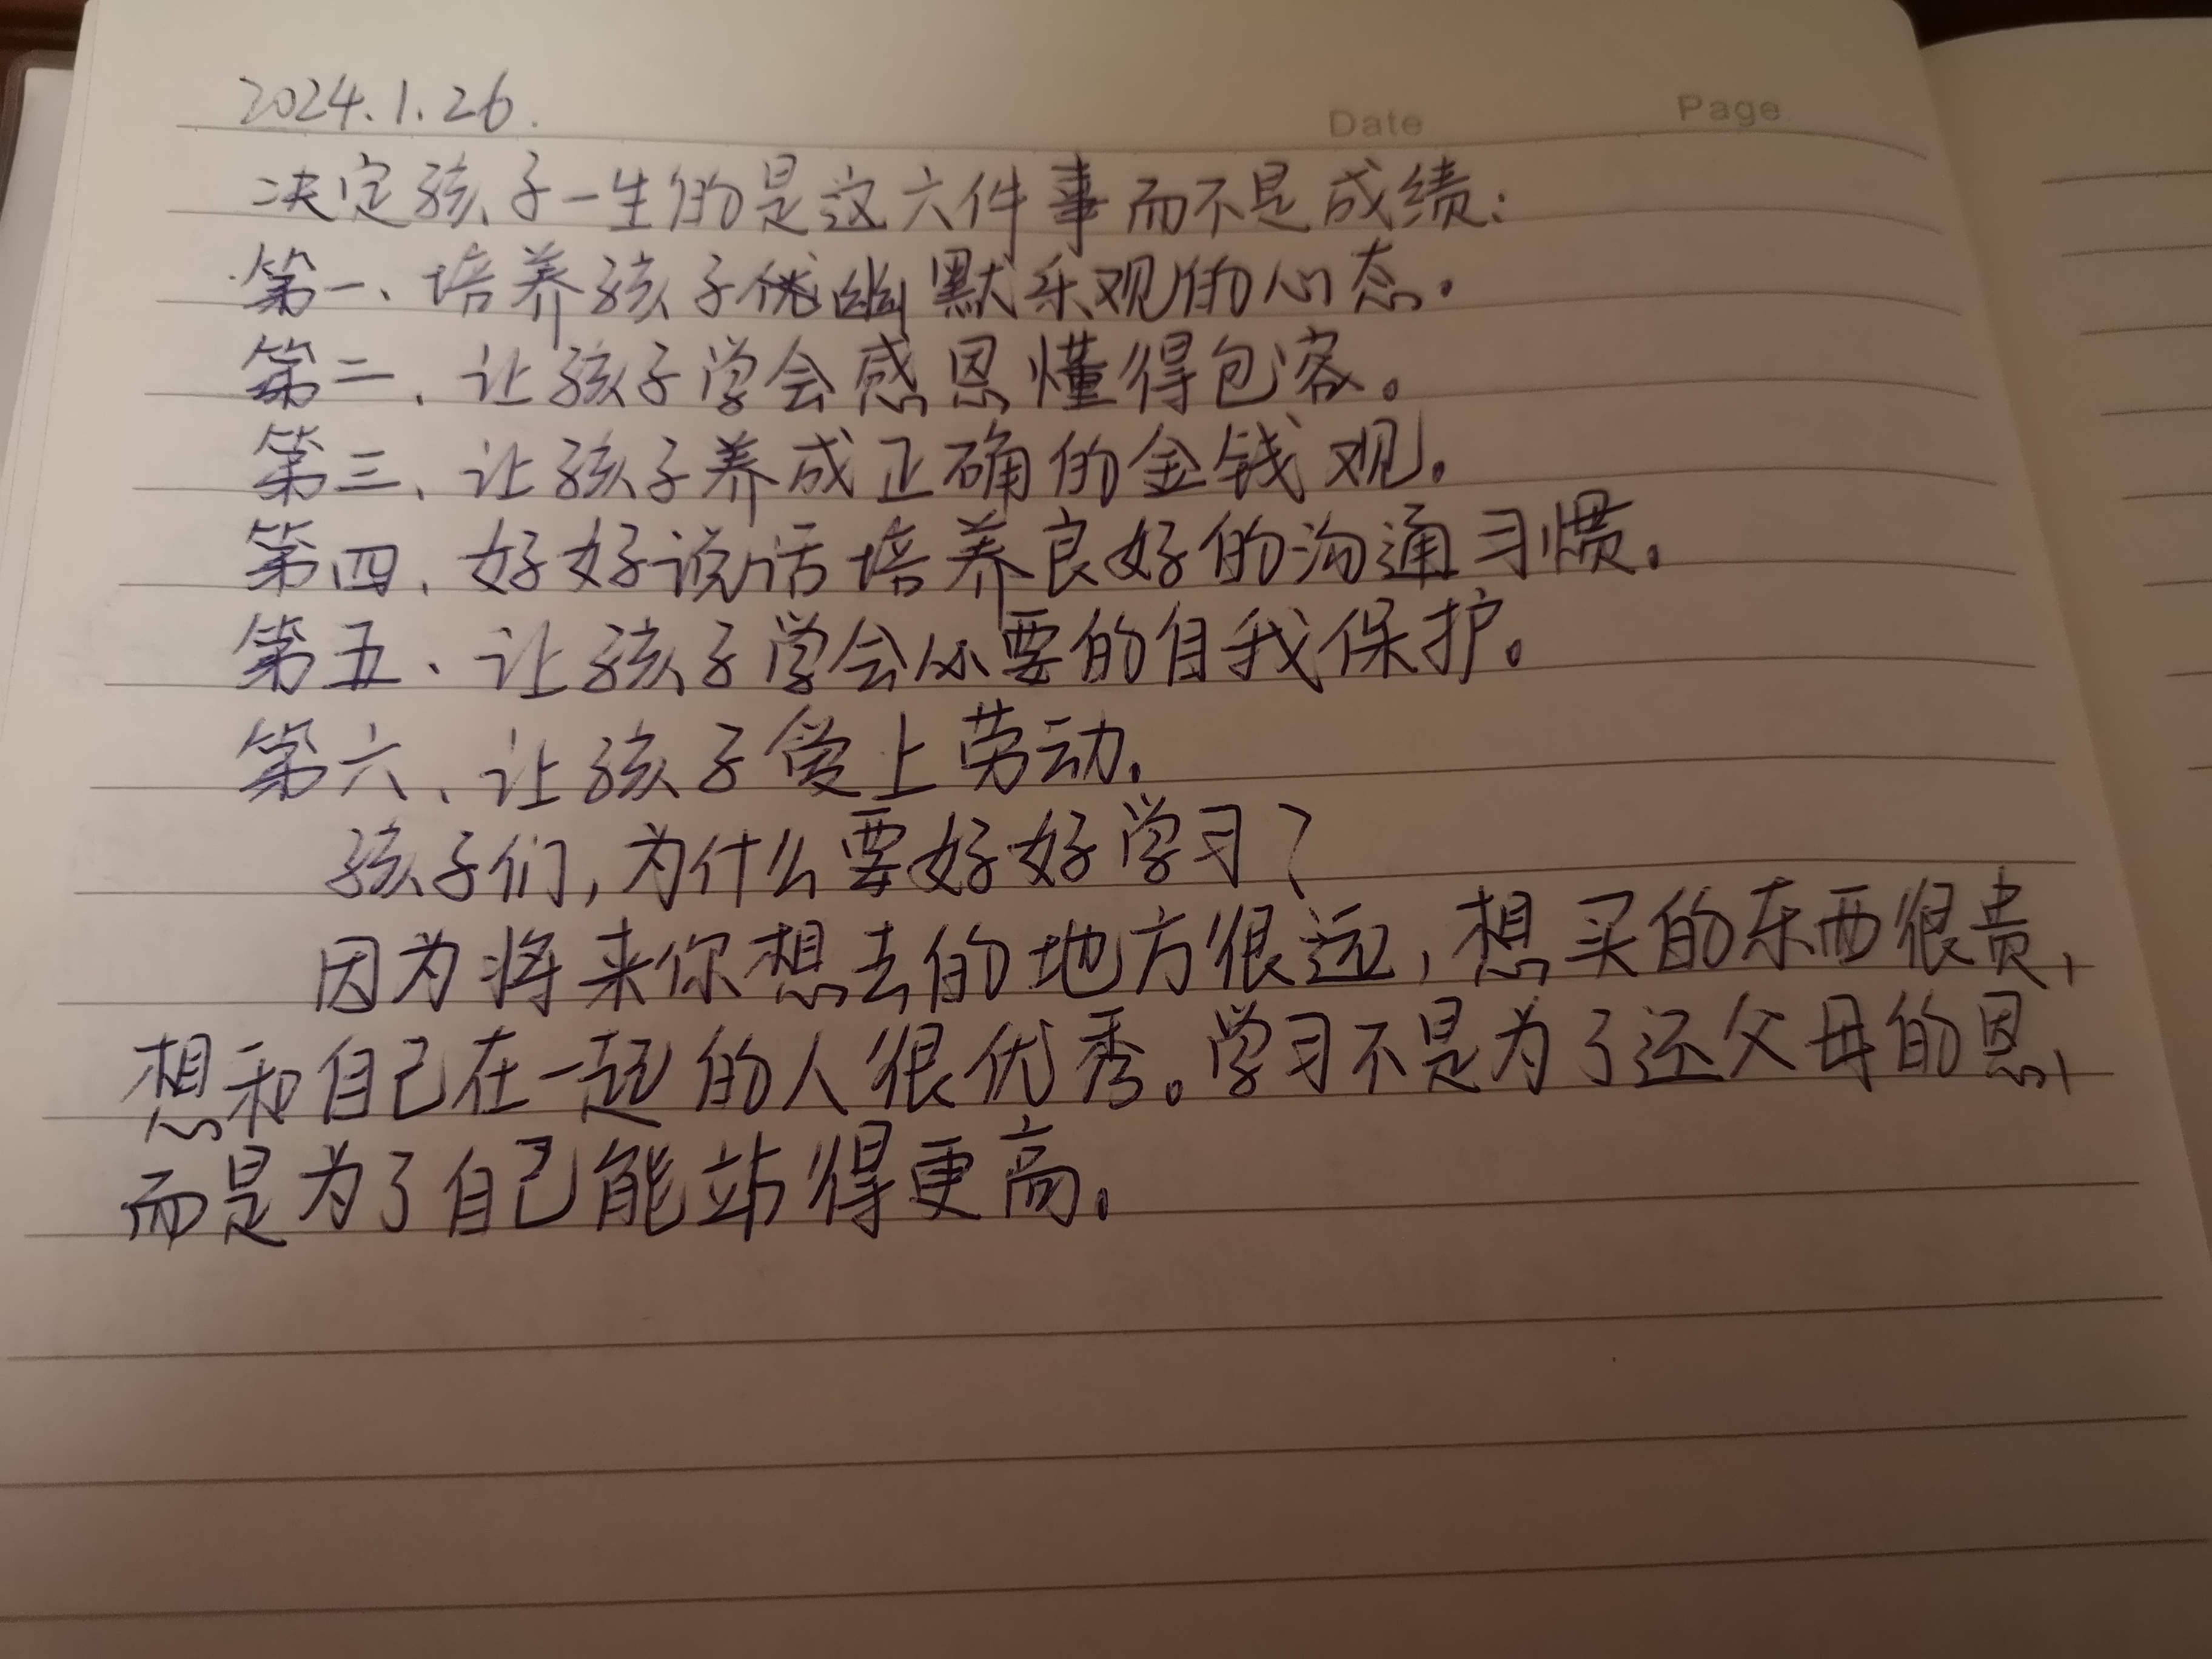 2024.1.26.
Date Page
决定孩子一生的是这六件事而不是成绩：
第一、培养孩子幽默乐观的心态。
第二、让孩子学会感恩懂得包容。
第三、让孩子养成正确的金钱观。
第四、好好说话培养良好的沟通习惯。
第五、让孩子学会必要的自我保护。
第六、让孩子爱上劳动。
孩子们，为什么要好好学习？
因为将来你想去的地方很远，想买的东西很贵，
想和自己在一起的人很优秀。学习不是为了还父母的恩，
而是为了自己能站得更高。